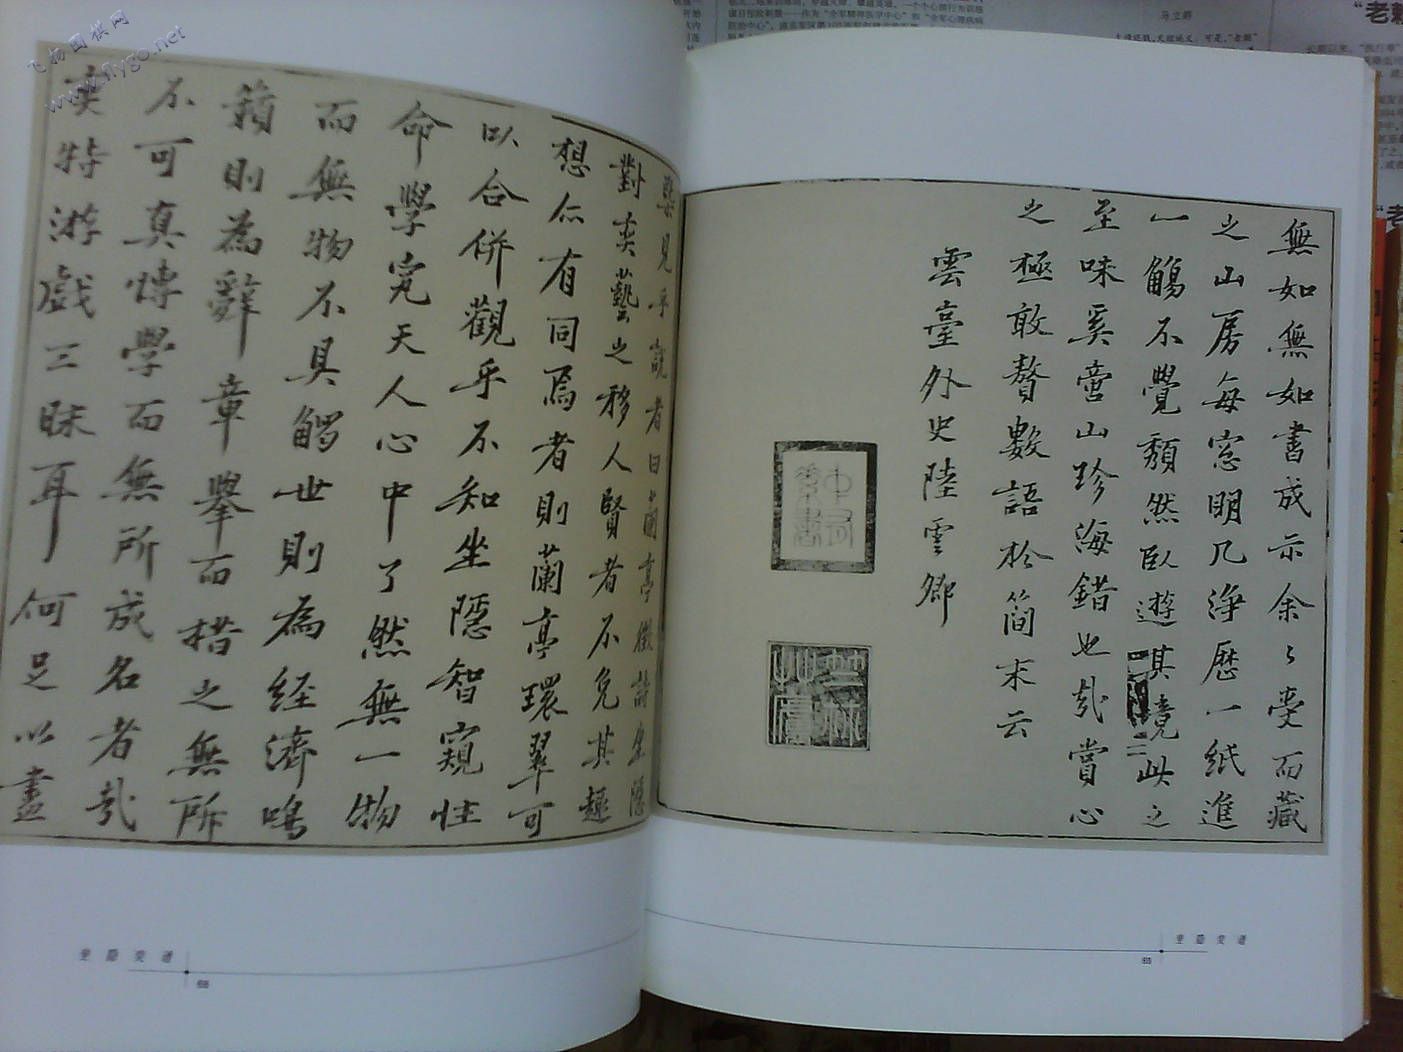 飞扬围棋网
www.flygo.net
槩見乎說者曰蘭亭徵詩坐隱
對奕藝之移人賢者不免其趣
想亦有同焉者則蘭亭環翠可
以合併觀乎不知坐隱智窺性
命學究天人心中了然無一物
而無物不具觸世則為經濟鳴
籟則為辭章舉而措之無所
不可真博學而無所成名者哉
奕特游戲三昧耳何足以盡
坐隐奕谱
無如無如書成示余〻受而藏
之山房每窓明几淨歷一紙進
一觴不覺頹然臥遊其境此之
至味奚啻山珍海錯也哉賞心
之極敢贅數語於簡末云
雲臺外史陸雲卿
坐隐奕谱